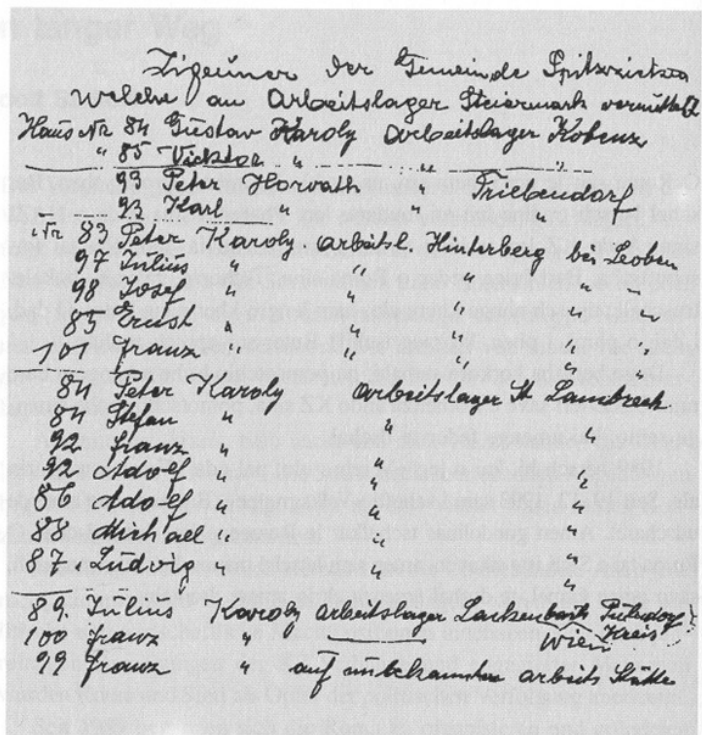 Zigeuner der Gemeinde Spitzzicken
Welche an Arbeitslager Steiermark vermittelt
Haus Nr 84 Gustav Karoly Arbeitslager Kobenz
" 85 Vicktor " " "
93 Peter Horvath " Triebendorf
93 Karl " " "
Nr. 83 Peter Karoly Arbeitsl. Hinterberg bei Leoben
97 Julius " " " "
98 Josef " " " " "
85 Ernst " " " " "
101 Franz " " " " "
84 Peter Karoly Arbeitslager St. Lambrech
84 Stefan " " "
92 Franz " " "
92 Adolf " " "
66 Adolf " " "
88 Michael " " "
87 " Ludvig " " "
89 Julius Karoly Arbeitslager Lackenbach
Kreis
100 Franz " Wien
99 Franz " auf unbekannten Arbeits Stätte